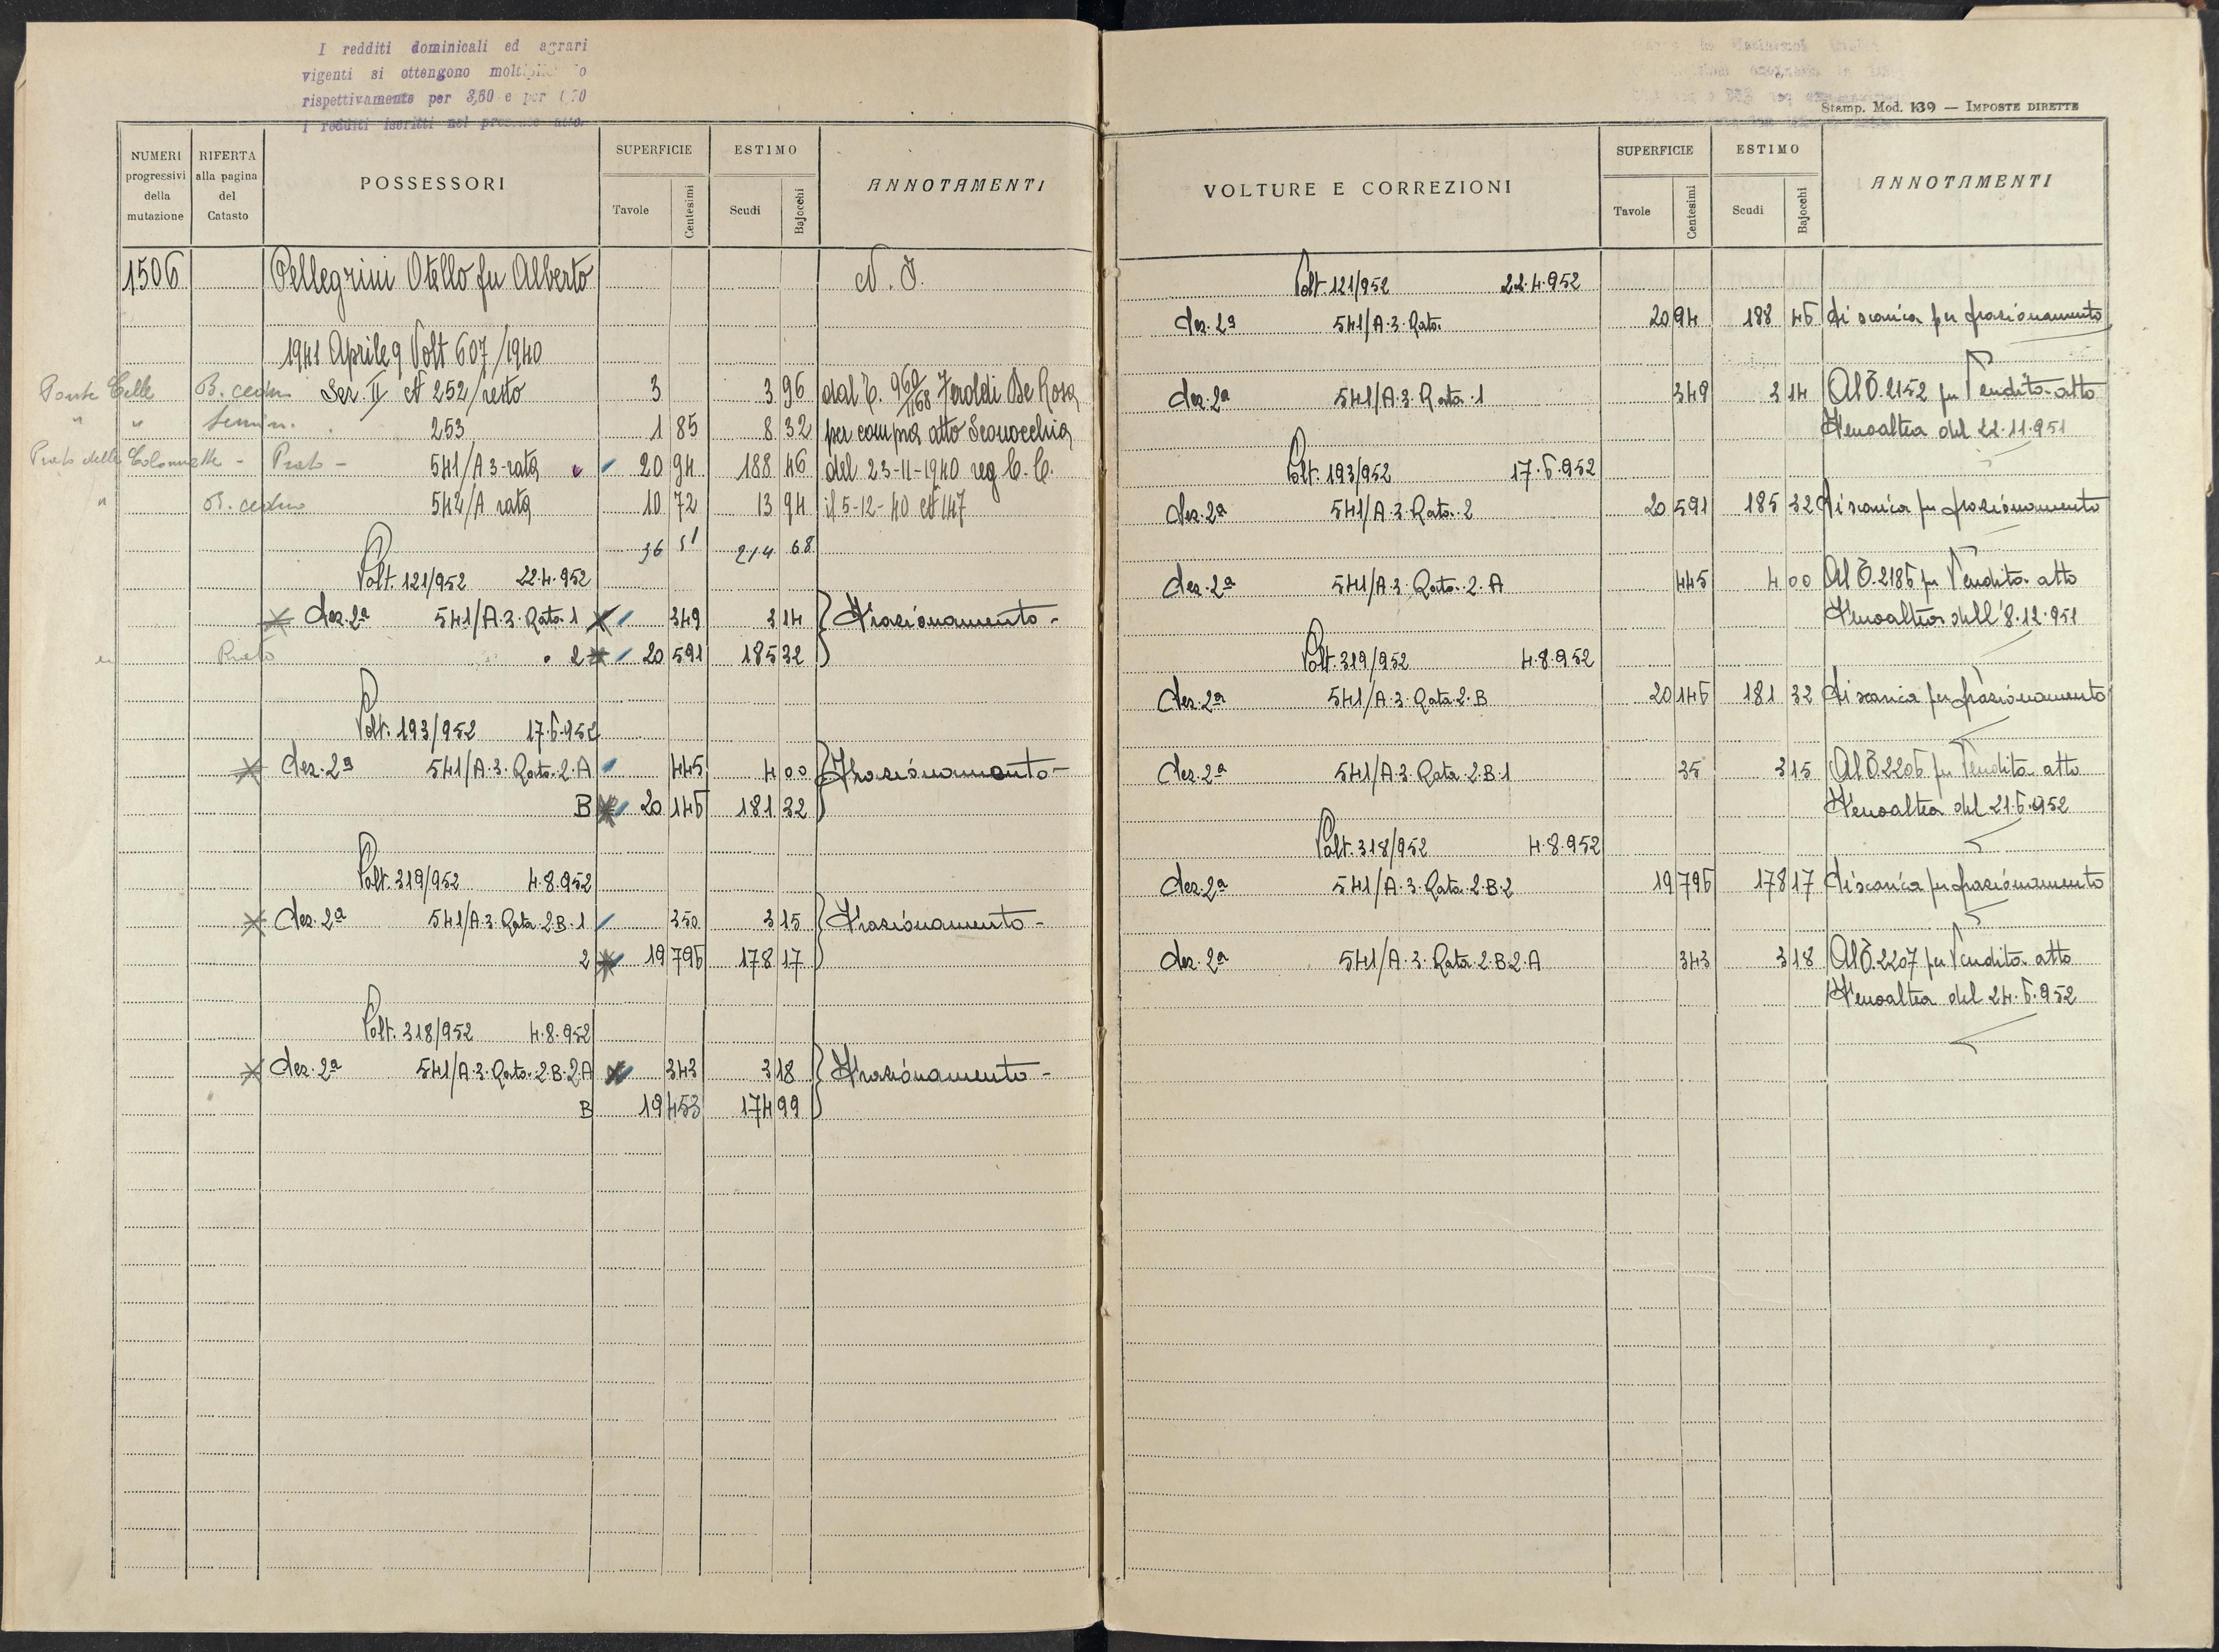 I redditi dominicali ed agrari
vigenti si ottengono
rispettivamente per 3,60 e per
I redditi iscritti nel presente atto.
NUMERI progressivi della mutazione
RIFERTA alla pagina del Catasto
POSSESSORI
SUPERFICIE
Tavole Centesimi
ESTIMO
Scudi Bajocchi
ANNOTAMENTI
1506 Pellegrini Otello fu Alberto
1941 Aprile 9 Volt 607/1940
Ponte Celle B. ceduo Sez. II N 252/resto 3 3 96 dal C. 960/1168 Feroldi De Rosa
" " Semin. 253 1 85 8 32 per compra atto Sconocchia
Prato delle Colonnette - Prato - 541/A 3-rata 20 94 188 46 del 23-11-1940 reg C. C.
" B. ceduo 542/A rata 10 72 13 94 il 5-12-40 N 147
36 51 214 68
Volt. 121/952 22.4.952
Sez. 2ª 541/A.3.Rata.1 349 3 14 Frazionamento -
Prato 2 20 591 185 32
Volt. 193/952 17.6.952
Sez. 2ª 541/A.3.Rata.2.A 445 4 00 Frazionamento -
B 20 146 181 32
Volt. 319/952 4.8.952
Sez. 2ª 541/A.3.Rata.2.B.1 350 3 15 Frazionamento -
2 19 796 178 17
Volt. 318/952 4.8.952
Sez. 2ª 541/A.3.Rata.2.B.2.A 343 3 18 Frazionamento -
B 19 453 174 99
Stamp. Mod. 139 — IMPOSTE DIRETTE
VOLTURE E CORREZIONI
SUPERFICIE
Tavole Centesimi
ESTIMO
Scudi Bajocchi
ANNOTAMENTI
Volt. 121/952 22.4.952
Sez. 2ª 541/A.3.Rata. 20 94 188 46 Si scarica per frazionamento
Sez. 2ª 541/A.3.Rata.1 349 3 14 Al C. 2152 per Vendita atto
del 22.11.951
Volt. 193/952 17.6.952
Sez. 2ª 541/A.3.Rata.2 20 591 185 32 Si scarica per frazionamento
Sez. 2ª 541/A.3.Rata.2.A 445 4 00 Al C. 2186 per Vendita atto
dell'8.12.951
Volt. 319/952 4.8.952
Sez. 2ª 541/A.3.Rata.2.B 20 146 181 32 Si scarica per frazionamento
Sez. 2ª 541/A.3.Rata.2.B.1 35 3 15 Al C. 2206 per Vendita atto
del 21.6.952
Volt. 318/952 4.8.952
Sez. 2ª 541/A.3.Rata.2.B.2 19 796 178 17 Si scarica per frazionamento
Sez. 2ª 541/A.3.Rata.2.B.2.A 343 3 18 Al C. 2207 per Vendita atto
del 24.6.952